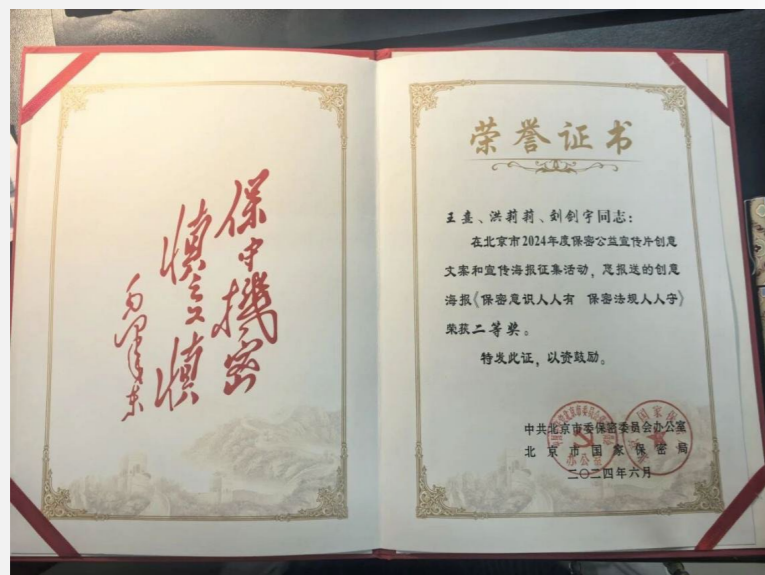 保守機密
慎之又慎
毛泽东
荣誉证书
王垚、洪莉莉、刘钊宇同志：
在北京市2024年度保密公益宣传片创意
文案和宣传海报征集活动，您报送的创意
海报《保密意识人人有 保密法规人人守》
荣获二等奖。
特发此证，以资鼓励。
中共北京市委保密委员会办公室
北京市国家保密局
二〇二四年六月
办公室